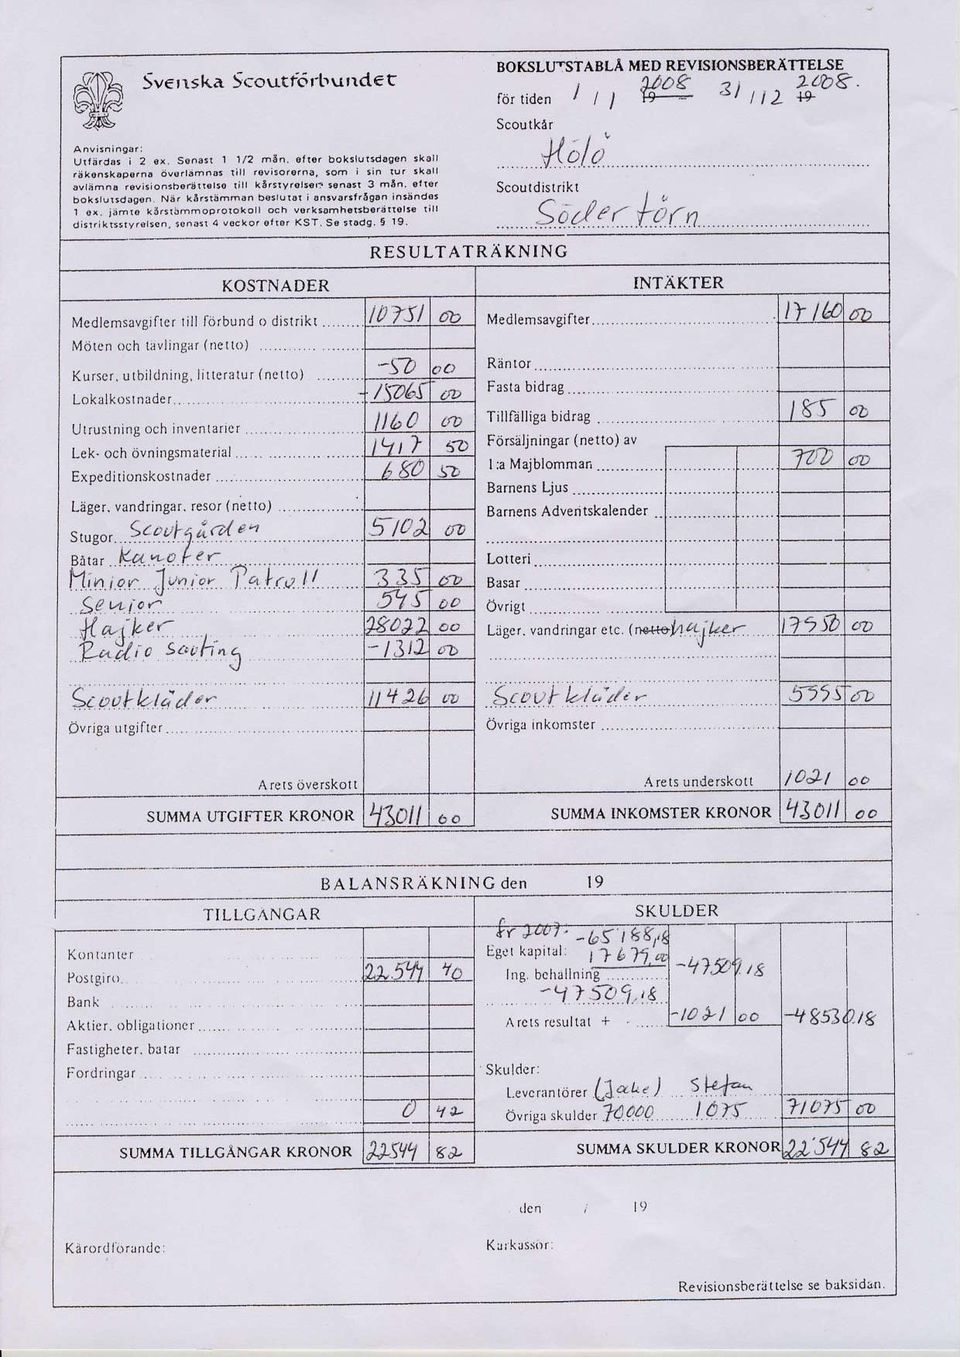 Svenska Scoutförbundet
Anvisningar:
Utfärdas i 2 ex. Senast 1 1/2 mån. efter bokslutsdagen skall
räkenskaperna överlämnas till revisorerna, som i sin tur skall
avlämna revisionsberättelse till kårstyrelsen senast 3 mån. efter
bokslutsdagen. När kårstämman beslutat i ansvarsfrågan insändes
1 ex. jämte kårstämmoprotokoll och verksamhetsberättelse till
distriktsstyrelsen, senast 4 veckor efter KST. Se stadg. § 19.
BOKSLUTSTABLÅ MED REVISIONSBERÄTTELSE
för tiden 1 / 1 2008 19 31 / 12 2008. 19
Scoutkår
Hölö
Scoutdistrikt
Södertörn
RESULTATRÄKNING
KOSTNADER
Medlemsavgifter till förbund o distrikt 10751 00
Möten och tävlingar (netto)
Kurser, utbildning, litteratur (netto) -50 00
Lokalkostnader - 15065 00
Utrustning och inventarier 1160 00
Lek- och övningsmaterial 1417 50
Expeditionskostnader 680 50
Läger, vandringar, resor (netto)
Stugor Scoutgården 5102 00
Båtar Kanoter
Minior Junior Patrull 335 00
Senior 545 00
Hajker 28022 00
Radio Scouting -1312 00
Scoutkläder 11426 00
Övriga utgifter
Årets överskott
SUMMA UTGIFTER KRONOR 43011 00
INTÄKTER
Medlemsavgifter 17160 00
Räntor
Fasta bidrag
Tillfälliga bidrag 185 00
Försäljningar (netto) av
1:a Majblomman 700 00
Barnens Ljus
Barnens Adventskalender
Lotteri
Basar
Övrigt
Läger, vandringar etc. (netto) hajker 17950 00
Scoutkläder 5995 00
Övriga inkomster
Årets underskott 1021 00
SUMMA INKOMSTER KRONOR 43011 00
BALANSRÄKNING den 19
TILLGÅNGAR
Kontanter
Postgiro 22.544 40
Bank
Aktier, obligationer
Fastigheter, båtar
Fordringar
0 42
SUMMA TILLGÅNGAR KRONOR 22544 82
SKULDER
fr 2007: -65188,18
Eget kapital: 17679,00
Ing. behållning -47509,18
-47509,18
Årets resultat + - -1021 00 -48530,18
Skulder:
Leverantörer (Jacke) Stefan
Övriga skulder 70000 1075 71075 00
SUMMA SKULDER KRONOR 22544 82
den / 19
Kårordförande:
Kårkassör:
Revisionsberättelse se baksidan.